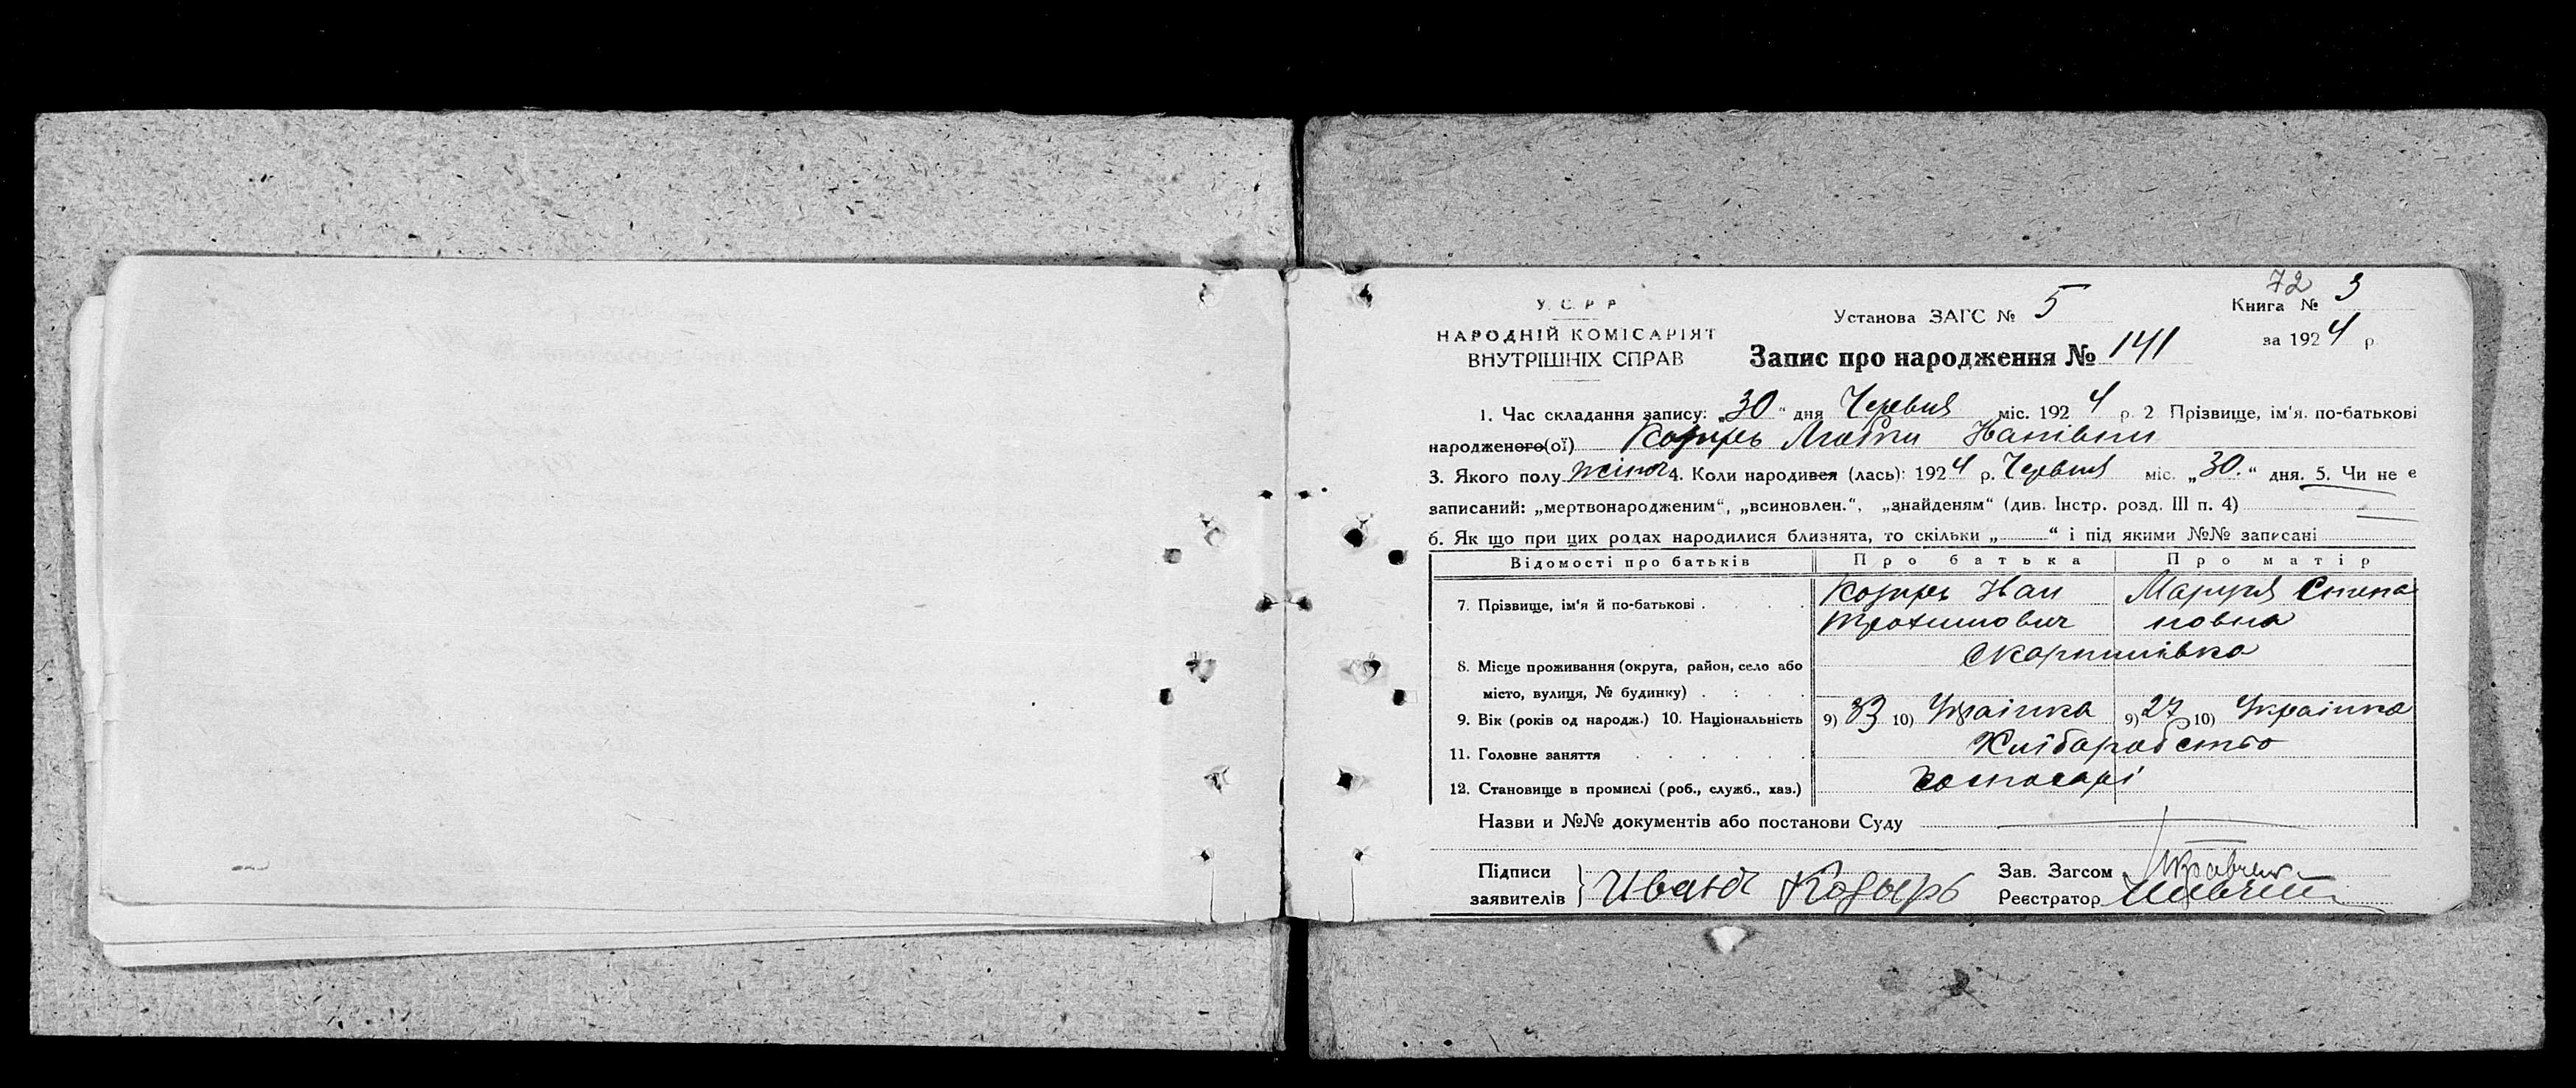 72
У. С. Р. Р.
НАРОДНІЙ КОМІСАРІЯТ
ВНУТРІШНІХ СПРАВ
Установа ЗАГС № 5
Книга № 3
за 1924 р.
Запис про народження № 141
1. Час складання запису: „30“ дня Червня міс. 1924 р. 2 Прізвище, ім'я, по-батькові
народженого(ої) Козирь
3. Якого полу жіноч 4. Коли народився (лась): 1924 р. Червня міс. „30.“ дня. 5. Чи не є
записаний: „мертвонародженим“, „всиновлен.“, „знайденям“ (див. Інстр. розд. III п. 4)
6. Як що при цих родах народилися близнята, то скільки „ “ і під якими №№ записані
Відомості про батьків Про батька Про матір
7. Прізвище, ім'я й по-батькові . . . Козирь Иван Маруся Степа
Трохимович новна
8. Місце проживання (округа, район, село або
місто, вулиця, № будинку) . : . .
9. Вік (років од народж.) 10. Національність 9) 33 10) Українка 9) 27 10) Українка
11. Головне заняття . . . . . Хліборобство
12. Становище в промислі (роб., служб., хаз.) господарі
Назви и №№ документів або постанови Суду
Підписи
заявителів } Иванъ Козырь
Зав. Загсом
Реєстратор